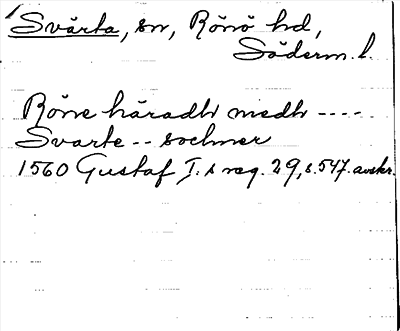 Svärta, sn, Rönö hd,
Söderm. l.
Röne häradh medh ----
Svarte -- sochner
1560 Gustaf I:s reg. 29, s. 547. avskr.